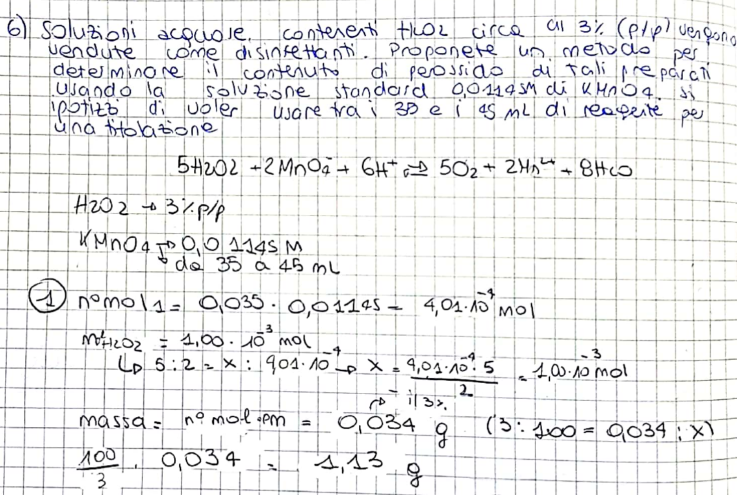 6) Soluzioni acquose contenenti H2O2 circa al 3% (p/p) vengono
vendute come disinfettanti. Proponete un metodo per
determinare il contenuto di perossido di tali preparati
usando la soluzione standard 0,01145M di KMnO4. Si
ipotizzi di voler usare tra i 35 e i 45 mL di reagente per
una titolazione
5H2O2 + 2MnO4⁻ + 6H⁺ ⇌ 5O2 + 2Mn²⁺ + 8H2O
H2O2 → 3% p/p
KMnO4 → 0,01145 M
↳ da 35 a 45 mL
① n° mol 1 = 0,035 · 0,01145 = 4,01·10⁻⁴ mol
n° H2O2 = 1,00·10⁻³ mol
↳ 5:2 = x : 4,01·10⁻⁴ → x = 4,01·10⁻⁴·5 / 2 = 1,00·10⁻³ mol
→ il 3%
massa = n° mol · pm = 0,034 g (3:100 = 0,034 : x)
100/3 · 0,034 = 1,13 g